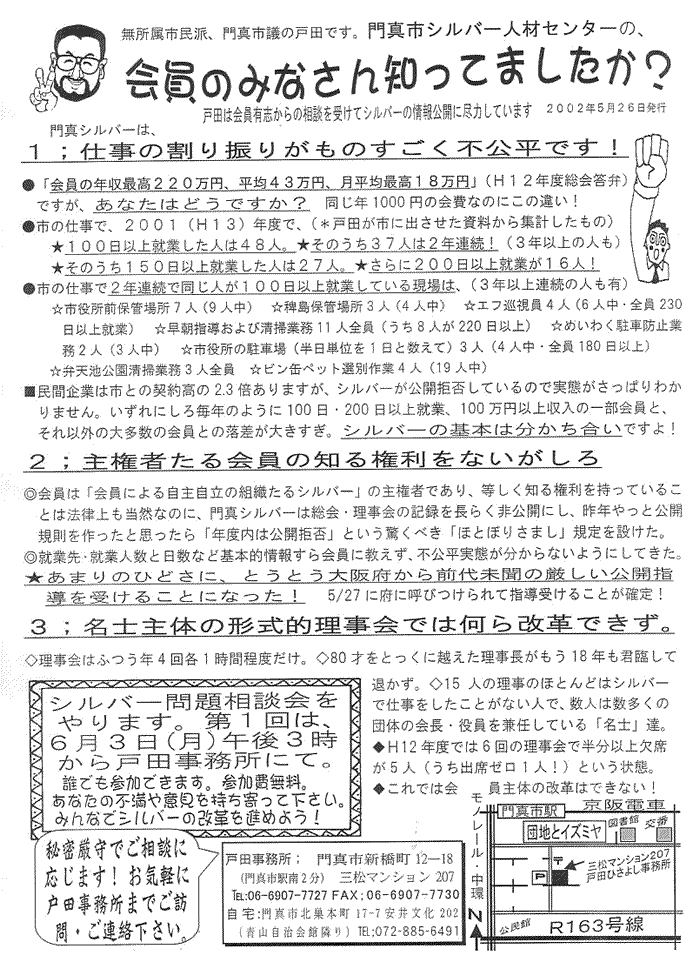 無所属市民派、門真市議の戸田です。門真市シルバー人材センターの、
会員のみなさん知ってましたか？
戸田は会員有志からの相談を受けてシルバーの情報公開に尽力しています　２００２年５月２６日発行
門真シルバーは、
１；仕事の割り振りがものすごく不公平です！
●「会員の年収最高２２０万円、平均４３万円、月平均最高１８万円」（Ｈ１２年度総会答弁）
ですが、あなたはどうですか？　同じ年1000円の会費なのにこの違い！
●市の仕事で、２００１（Ｈ１３）年度で、（＊戸田が市に出させた資料から集計したもの）
★１００日以上就業した人は４８人。★そのうち３７人は２年連続！（３年以上の人も）
★そのうち１５０日以上就業した人は２７人。★さらに２００日以上就業が１６人！
●市の仕事で２年連続で同じ人が１００日以上就業している現場は、（３年以上連続の人も有）
☆市役所前保管場所７人（９人中）　☆稗島保管場所３人（４人中）　☆エフ巡視員４人（６人中・全員230
日以上就業）　☆早朝指導および清掃業務 11 人全員（うち８人が 220 日以上）　☆めいわく駐車防止業
務２人（３人中）　☆市役所の駐車場（半日単位を１日と数えて）３人（４人中・全員 180 日以上）
☆弁天池公園清掃業務３人全員　☆ビン缶ペット選別作業４人（19 人中）
■民間企業は市との契約高の 2.3 倍ありますが、シルバーが公開拒否しているので実態がさっぱりわか
りません。いずれにしろ毎年のように 100 日・200 日以上就業、100 万円以上収入の一部会員と、
それ以外の大多数の会員との落差が大きすぎ。シルバーの基本は分かち合いですよ！
２；主権者たる会員の知る権利をないがしろ
◎会員は「会員による自主自立の組織たるシルバー」の主権者であり、等しく知る権利を持っているこ
とは法律上も当然なのに、門真シルバーは総会・理事会の記録を長らく非公開にし、昨年やっと公開
規則を作ったと思ったら「年度内は公開拒否」という驚くべき「ほとぼりさまし」規定を設けた。
◎就業先・就業人数と日数など基本的情報すら会員に教えず、不公平実態が分からないようにしてきた。
★あまりのひどさに、とうとう大阪府から前代未聞の厳しい公開指
導を受けることになった！　5/27 に府に呼びつけられて指導受けることが確定！
３；名士主体の形式的理事会では何ら改革できず。
◇理事会はふつう年４回各１時間程度だけ。◇80 才をとっくに越えた理事長がもう 18 年も君臨して
退かず。◇15 人の理事のほとんどはシルバー
で仕事をしたことがない人で、数人は数多くの
団体の会長・役員を兼任している「名士」達。
◆Ｈ12 年度では６回の理事会で半分以上欠席
が５人（うち出席ゼロ１人！）という状態。
◆これでは会員主体の改革はできない！
シルバー問題相談会を
やります。第１回は、
６月３日（月）午後３時
から戸田事務所にて。
誰でも参加できます。参加費無料。
あなたの不満や意見を持ち寄って下さい。
みんなでシルバーの改革を進めよう！
秘密厳守でご相談に
応じます！お気軽に
戸田事務所までご訪
問・ご連絡下さい。
戸田事務所；　門真市新橋町 12―18
（門真市駅南２分）　三松マンション 207
TEL:06-6907-7727 FAX；06-6907-7730
自宅：門真市北巣本町 17-7 安井文化 202
（青山自治会館隣り）TEL;072-885-6491
モノレール・中環
N
門真市駅
京阪電車
団地とイズミヤ
図書館
交番
〒
P
三松マンション207
戸田ひさよし事務所
公民館
Ｒ１６３号線